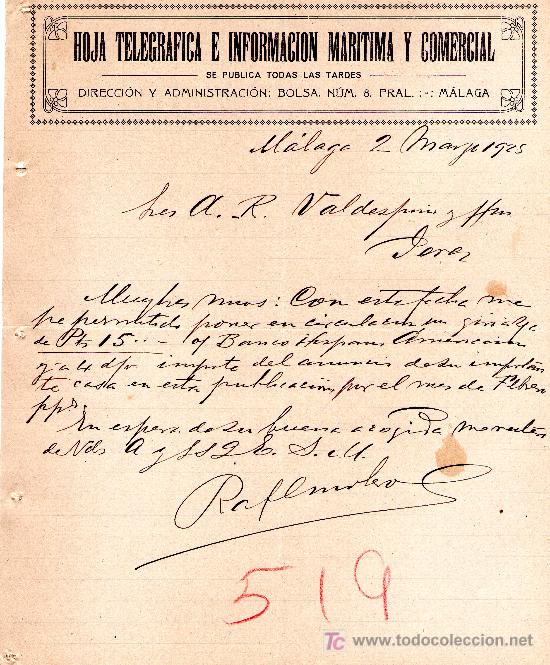 HOJA TELEGRAFICA E INFORMACION MARITIMA Y COMERCIAL
SE PUBLICA TODAS LAS TARDES
DIRECCIÓN Y ADMINISTRACIÓN: BOLSA, NÚM. 8, PRAL. :-: MÁLAGA
Málaga 2 Marzo 1925
Sres A. R. Valdespino y Hno
Jerez
Muy Sres mios: Con esta fecha me
he permitido poner en circulacion un giro
de Pts 15.- Banco Hispano Americano
y a 4 d/v importe del anuncio de su importan
te casa en esta publicación por el mes de Febrero
pp{do}.
En espera de su buena acogida
de Vds
519
TC www.todocoleccion.net